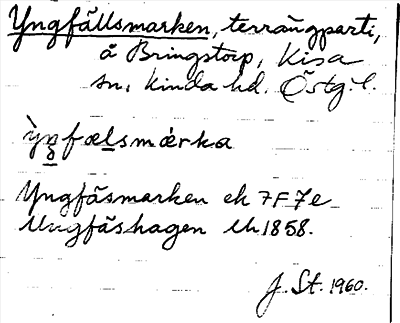 Yngfällsmarken, terrängparti,
å Bringstorp, Kisa
sn, Kinda hd. Östg. l.
ỳŋfælsmǽrka
Yngfäsmarken ek 7F7e
Ungfäshagen Uh 1858.
J. St. 1960.